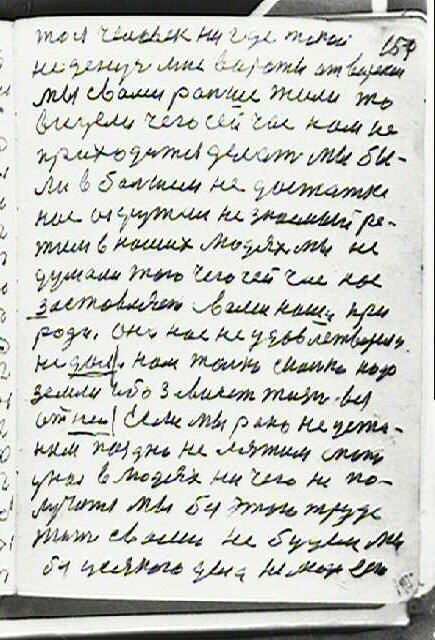 той человек ни где такой 157
не денуч мне
мы с вами раньше жили то
видели чего сей час нам не
приходится делат мы бы-
ли в большом не достатке
нас окружил не знаемый ре-
жим в наших людях мы не
думали того чего сей час нас
заставляет сама наша при
рода. она нас не удовлетворила
не дала нам только сколко надо
земли чтоб зависит жизн вся
от неё Если мы рано не уста-
нем поздно не ляжем спат
у нас в людях ни чего не по-
лучится мы без этого труда
жит с вами не будем мы
без усякого дела не может